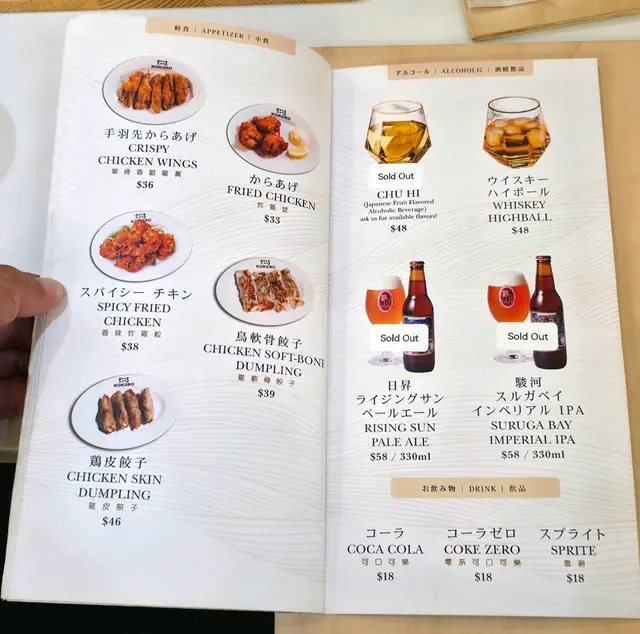 軽食 | APPETIZER | 小食
KOKORO
手羽先からあげ
CRISPY
CHICKEN WINGS
單骨香脆雞翼
$36
KOKORO
からあげ
FRIED CHICKEN
炸雞球
$33
KOKORO
スパイシー チキン
SPICY FRIED
CHICKEN
香辣炸雞粒
$38
KOKORO
鳥軟骨餃子
CHICKEN SOFT-BONE
DUMPLING
雞軟骨餃子
$39
KOKORO
鶏皮餃子
CHICKEN SKIN
DUMPLING
雞皮餃子
$46
アルコール | ALCOHOLIC | 酒精飲品
Sold Out
CHU HI
(Japanese Fruit Flavored
Alcoholic Beverage)
ask us for available flavors!
$48
ウイスキー
ハイボール
WHISKEY
HIGHBALL
$48
Sold Out
日昇
ライジングサン
ペールエール
RISING SUN
PALE ALE
$58 / 330ml
Sold Out
駿河
スルガベイ
インペリアル IPA
SURUGA BAY
IMPERIAL IPA
$58 / 330ml
お飲み物 | DRINK | 飲品
コーラ
COCA COLA
可口可樂
$18
コーラゼロ
COKE ZERO
零系可口可樂
$18
スプライト
SPRITE
雪碧
$18